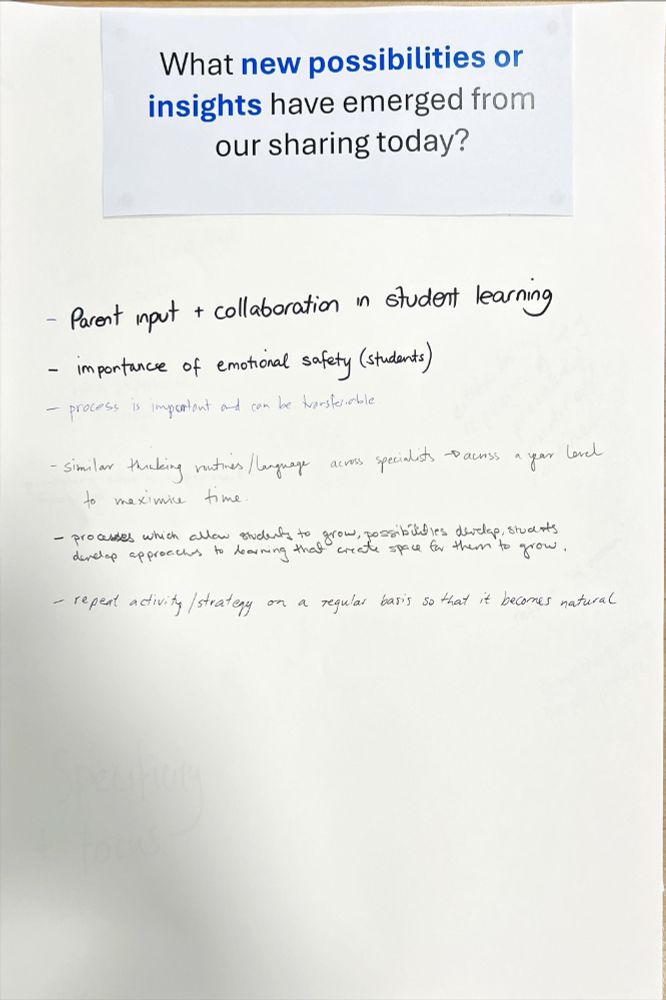 What new possibilities or
insights have emerged from
our sharing today?
- Parent input + collaboration in student learning
- importance of emotional safety (students)
- process is important and can be transferable.
- similar thinking routines/language across specialists → across a year level
to maximise time.
- processes which allow students to grow, possibilities develop, students
develop approaches to learning that create space for them to grow.
- repeat activity/strategy on a regular basis so that it becomes natural
Specificity
+ focus